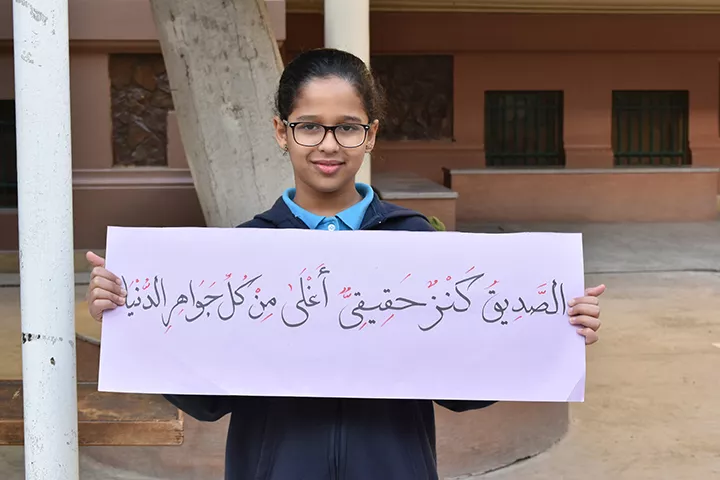 الصَّدِيقُ كَنْزٌ حَقِيقِيٌّ أَغْلَى مِنْ كُلِّ جَوَاهِرِ الدُّنْيَا